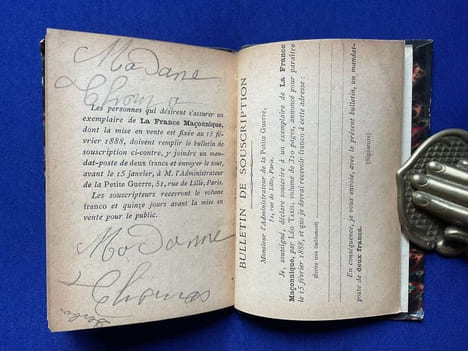 Madame
Thomas
Les personnes qui désirent s'assurer un
exemplaire de La France Maçonnique,
dont la mise en vente est fixée au 15 fé-
vrier 1888, doivent remplir le bulletin de
souscription ci-contre, y joindre un man-
dat-poste de deux francs et envoyer le tout,
avant le 15 janvier, à M. l'Administrateur
de la Petite Guerre, 51, rue de Lille, Paris.
Les souscripteurs recevront le volume
franco et quinze jours avant la mise en
vente pour le public.
Madame
Thomas
BULLETIN DE SOUSCRIPTION
Monsieur l'Administrateur de la Petite Guerre,
51, rue de Lille, Paris.
Je, soussigné, déclare souscrire à un exemplaire de La France
Maçonnique, par Léo Taxil, volume de 320 pages, annoncé pour paraître
le 15 février 1888, et que je devrai recevoir franco à cette adresse :
(Ecrire très lisiblement)
En conséquence, je vous envoie, avec le présent bulletin, un mandat-
poste de deux francs.
(Signature)